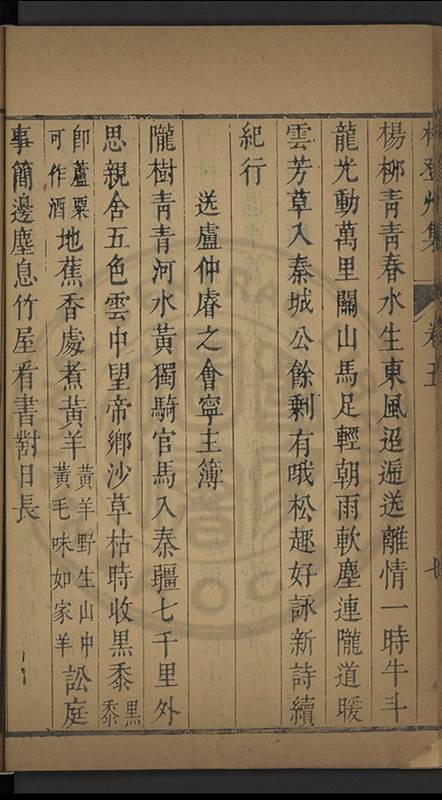 楊登州集　卷五
楊柳青青春水生東風迢遞送離情一時牛斗
龍光動萬里關山馬足輕朝雨軟塵連隴道暖
雲芳草入秦城公餘剩有哦松趣好詠新詩續
紀行
送盧仲庸之會寧主簿
隴樹青青河水黃獨騎官馬入秦疆七千里外
思親舍五色雲中望帝鄉沙草枯時收黑黍黑黍
卽蘆粟可作酒地蕉香處煮黃羊黃羊野生山中黃毛味如家羊訟庭
事簡邊塵息竹屋看書對日長